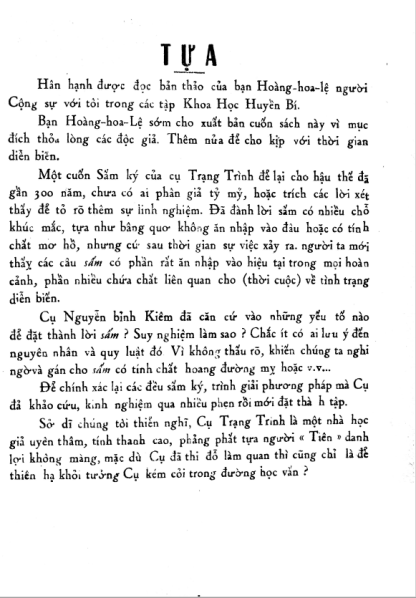 TỰA
Hân hạnh được đọc bản thảo của bạn Hoàng-hoa-lệ người
Cộng sự với tôi trong các tập Khoa Học Huyền Bí.
Bạn Hoàng-hoa-Lệ sớm cho xuất bản cuốn sách này vì mục
đích thỏa lòng các độc giả. Thêm nửa để cho kịp với thời gian
diễn biến.
Một cuốn Sấm ký của cụ Trạng Trình để lại cho hậu thế đã
gần 300 năm, chưa có ai phân giả tỷ mỷ, hoặc trích các lời xét
thấy để tỏ rõ thêm sự linh nghiệm. Đã đành lời sấm có nhiều chỗ
khúc mắc, tựa như bâng quơ không ăn nhập vào đâu hoặc có tính
chất mơ hồ, nhưng cứ sau thời gian sự việc xảy ra. người ta mới
thấy các câu sấm có phần rất ăn nhập vào hiện tại trong mọi hoàn
cảnh, phần nhiều chứa chất liên quan cho (thời cuộc) về tình trạng
diễn biến.
Cụ Nguyễn bỉnh Kiêm đã căn cứ vào những yếu tố nào
để đặt thành lời sấm ? Suy nghiệm làm sao ? Chắc ít có ai lưu ý đến
nguyên nhân và quy luật đó. Vì không thấu rõ, khiến chúng ta nghi
ngờ và gán cho sấm có tính chất hoang đường mỵ hoặc v.v...
Để chính xác lại các đều sấm ký, trình giải phương pháp mà Cụ
đã khảo cứu, kinh nghiệm qua nhiều phen rồi mới đặt thà h tập.
Sở dĩ chúng tôi thiển nghĩ, Cụ Trạng Trình là một nhà học
giả uyên thâm, tính thanh cao, phảng phất tựa người « Tiên » danh
lợi không màng, mặc dù Cụ đã thi đỗ làm quan thì cũng chỉ là để
thiên hạ khỏi tưởng Cụ kém cỏi trong đường học vấn ?